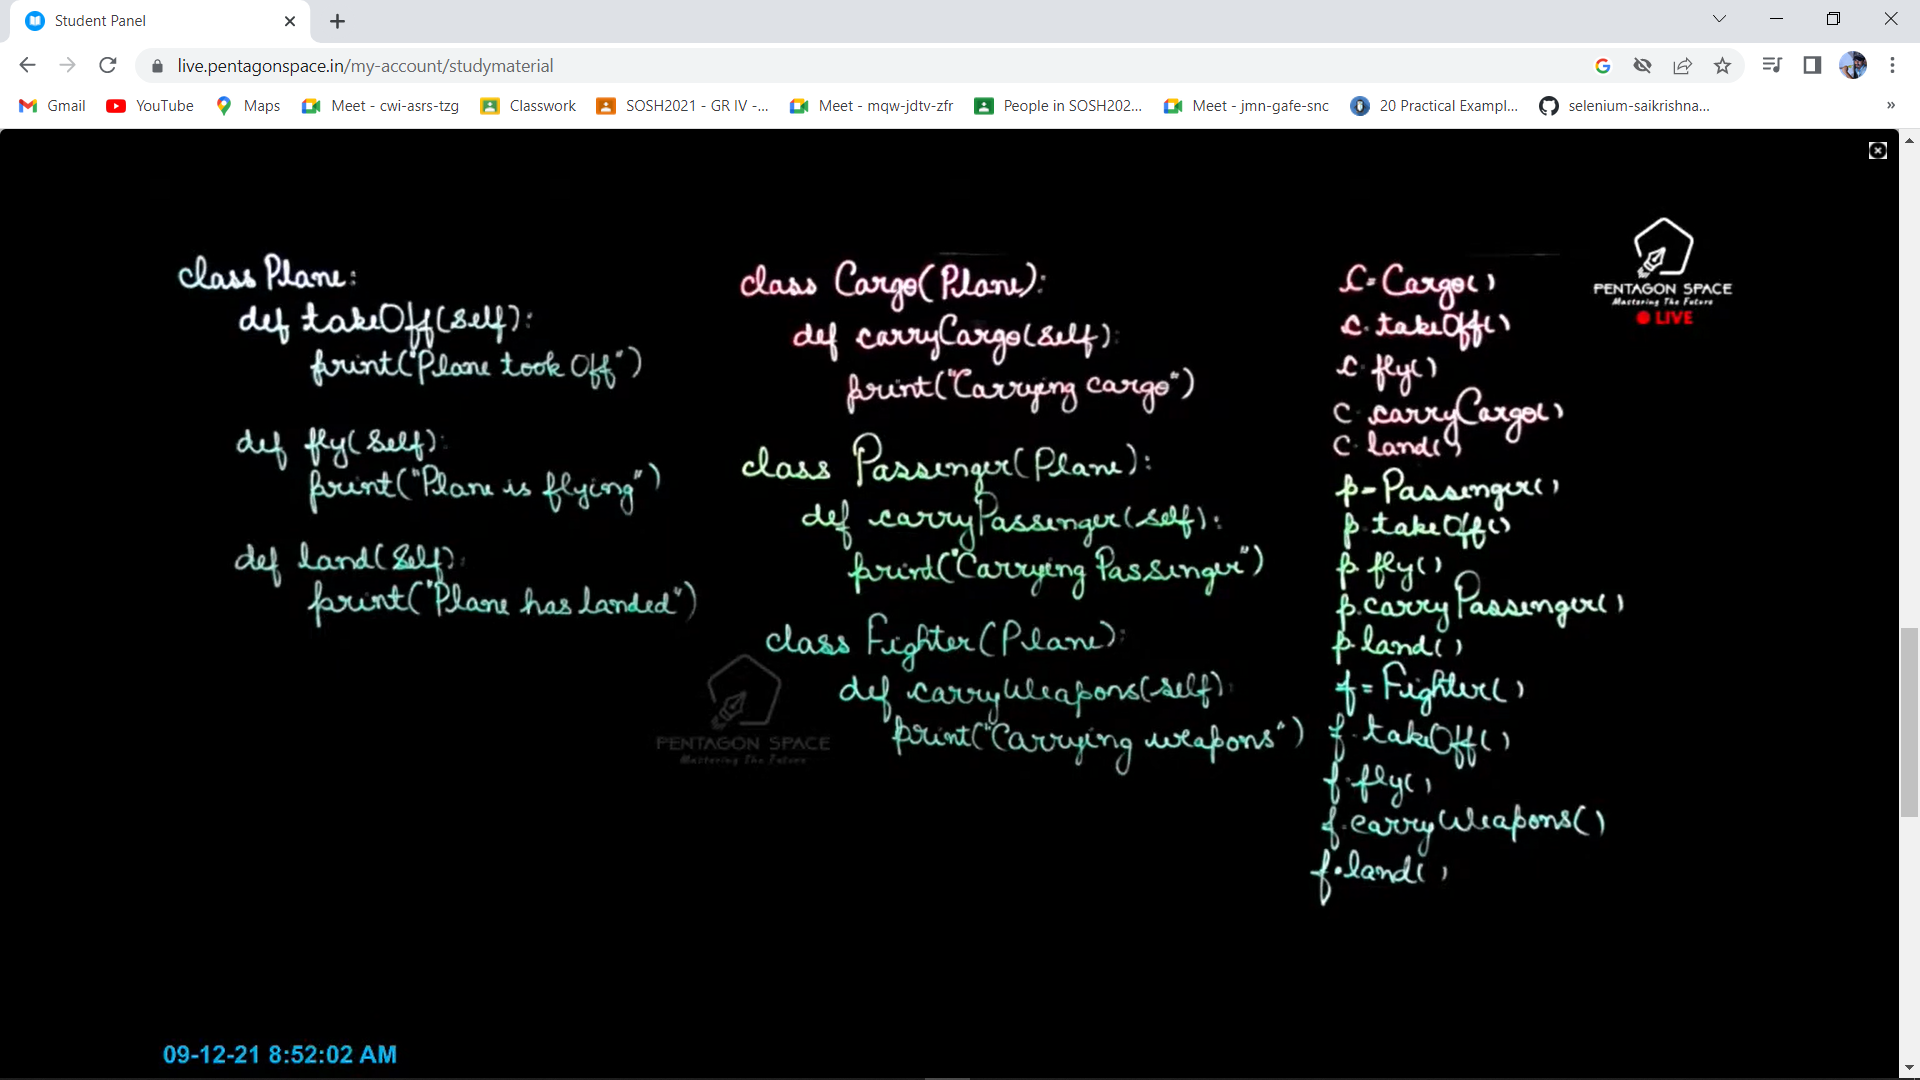 Student Panel
live.pentagonspace.in/my-account/studymaterial
Gmail
YouTube
Maps
Meet - cwi-asrs-tzg
Classwork
SOSH2021 - GR IV -...
Meet - mqw-jdtv-zfr
People in SOSH202...
Meet - jmn-gafe-snc
20 Practical Exampl...
selenium-saikrishna...
»
class Plane:
def takeOff(self):
print("Plane took Off")
def fly(self):
print("Plane is flying")
def land(self):
print("Plane has landed")
class Cargo(Plane):
def carryCargo(self):
print("Carrying cargo")
class Passenger(Plane):
def carryPassenger(self):
print("Carrying Passenger")
class Fighter(Plane):
def carryWeapons(self):
print("Carrying weapons")
C=Cargo()
c.takeOff()
c.fly()
c.carryCargo()
c.land()
p=Passenger()
p.takeOff()
p.fly()
p.carryPassenger()
p.land()
f=Fighter()
f.takeOff()
f.fly()
f.carryWeapons()
f.land()
PENTAGON SPACE
Mastering The Future
LIVE
PENTAGON SPACE
Mastering The Future
09-12-21 8:52:02 AM